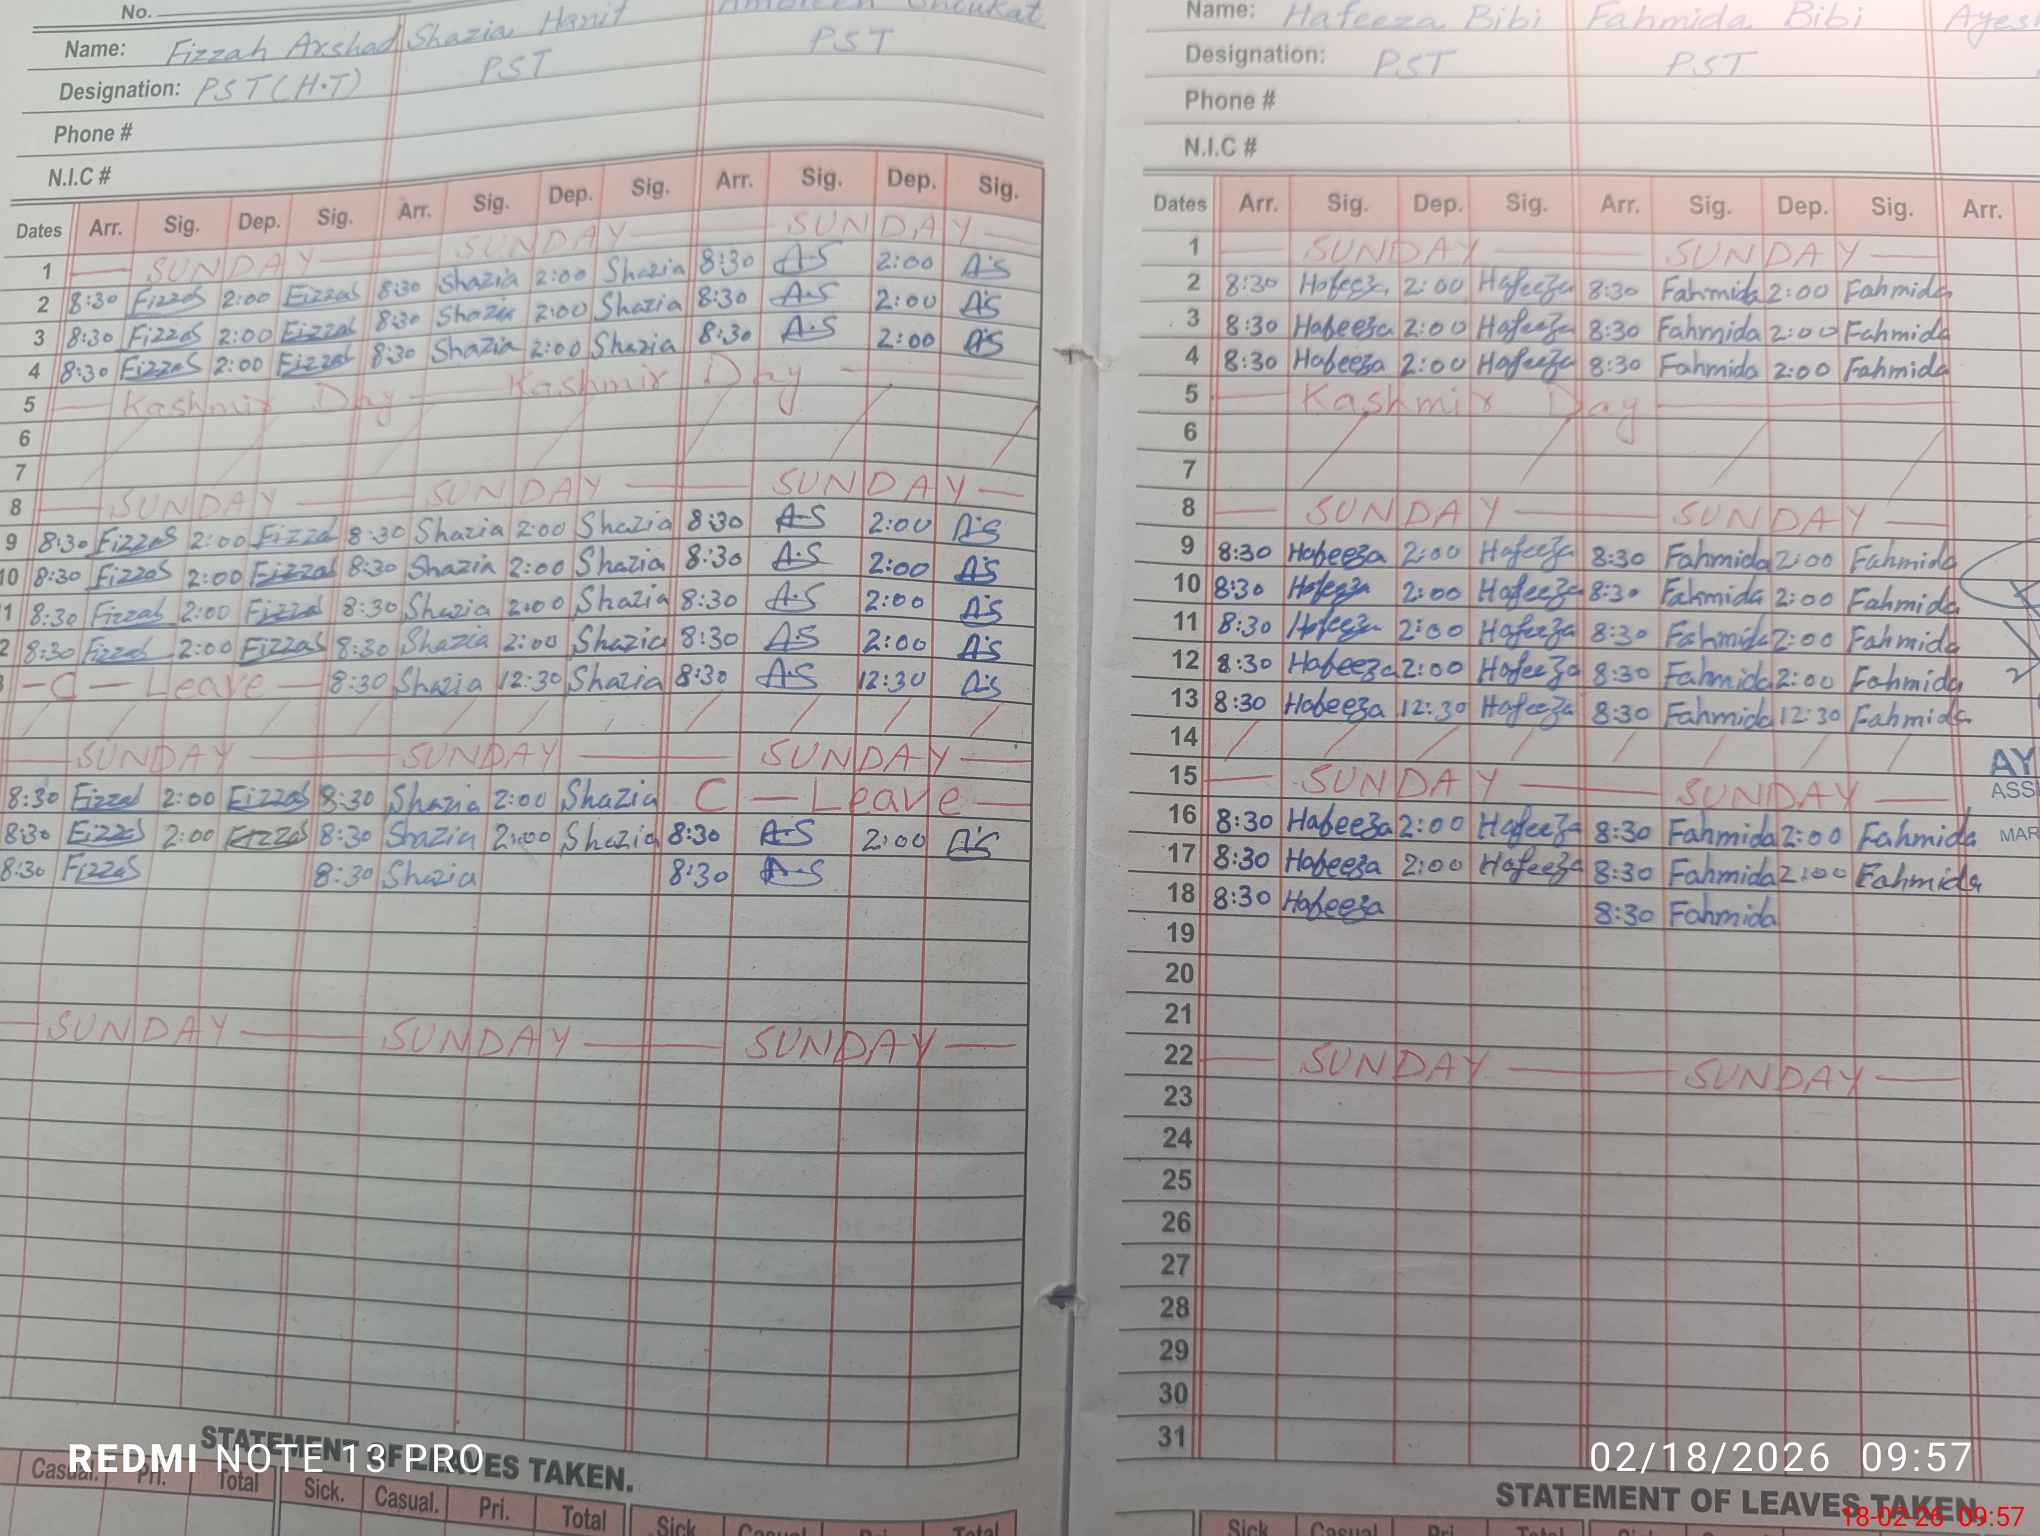 No.
Name: Fizzah Arshad Shazia Hanif Shoukat
Designation: PST (H.T) PST PST
Phone #
N.I.C #
Dates Arr. Sig. Dep. Sig. Arr. Sig. Dep. Sig. Arr. Sig. Dep. Sig.
1 — SUNDAY — SUNDAY — SUNDAY —
2 8:30 Fizzah 2:00 Fizzah 8:30 Shazia 2:00 Shazia 8:30 A.S 2:00 A.S
3 8:30 Fizzah 2:00 Fizzah 8:30 Shazia 2:00 Shazia 8:30 A.S 2:00 A.S
4 8:30 Fizzah 2:00 Fizzah 8:30 Shazia 2:00 Shazia 8:30 A.S 2:00 A.S
5 — Kashmir Day — Kashmir Day —
6
7
8 — SUNDAY — SUNDAY — SUNDAY —
9 8:30 Fizzah 2:00 Fizzah 8:30 Shazia 2:00 Shazia 8:30 A.S 2:00 A.S
10 8:30 Fizzah 2:00 Fizzah 8:30 Shazia 2:00 Shazia 8:30 A.S 2:00 A.S
1 8:30 Fizzah 2:00 Fizzah 8:30 Shazia 2:00 Shazia 8:30 A.S 2:00 A.S
2 8:30 Fizzah 2:00 Fizzah 8:30 Shazia 2:00 Shazia 8:30 A.S 2:00 A.S
— C — Leave — 8:30 Shazia 12:30 Shazia 8:30 A.S 12:30 A.S
— SUNDAY — SUNDAY — SUNDAY —
8:30 Fizzah 2:00 Fizzah 8:30 Shazia 2:00 Shazia C — Leave —
8:30 Fizzah 2:00 Fizzah 8:30 Shazia 2:00 Shazia 8:30 A.S 2:00 A.S
8:30 Fizzah 8:30 Shazia 8:30 A.S
— SUNDAY — SUNDAY — SUNDAY —
STATEMENT OF LEAVES TAKEN.
Casual. Pri. Total Sick. Casual. Pri. Total Sick Casual Pri. Total
REDMI NOTE 13 PRO
Name: Hafeeza Bibi Fahmida Bibi Ayes
Designation: PST PST
Phone #
N.I.C #
Dates Arr. Sig. Dep. Sig. Arr. Sig. Dep. Sig. Arr.
1 — SUNDAY — SUNDAY —
2 8:30 Hafeeza 2:00 Hafeeza 8:30 Fahmida 2:00 Fahmida
3 8:30 Hafeeza 2:00 Hafeeza 8:30 Fahmida 2:00 Fahmida
4 8:30 Hafeeza 2:00 Hafeeza 8:30 Fahmida 2:00 Fahmida
5 — Kashmir Day —
6
7
8 — SUNDAY — SUNDAY —
9 8:30 Hafeeza 2:00 Hafeeza 8:30 Fahmida 2:00 Fahmida
10 8:30 Hafeeza 2:00 Hafeeza 8:30 Fahmida 2:00 Fahmida
11 8:30 Hafeeza 2:00 Hafeeza 8:30 Fahmida 2:00 Fahmida
12 8:30 Hafeeza 2:00 Hafeeza 8:30 Fahmida 2:00 Fahmida
13 8:30 Hafeeza 12:30 Hafeeza 8:30 Fahmida 12:30 Fahmida
14
AY
15 — SUNDAY — SUNDAY —
ASSI
16 8:30 Hafeeza 2:00 Hafeeza 8:30 Fahmida 2:00 Fahmida
MAR
17 8:30 Hafeeza 2:00 Hafeeza 8:30 Fahmida 2:00 Fahmida
18 8:30 Hafeeza 8:30 Fahmida
19
20
21
22 — SUNDAY — SUNDAY —
23
24
25
26
27
28
29
30
31
02/18/2026 09:57
STATEMENT OF LEAVES TAKEN
18-02-26 09:57
Sick Casual Pri Total Sick Casual Pri. Total